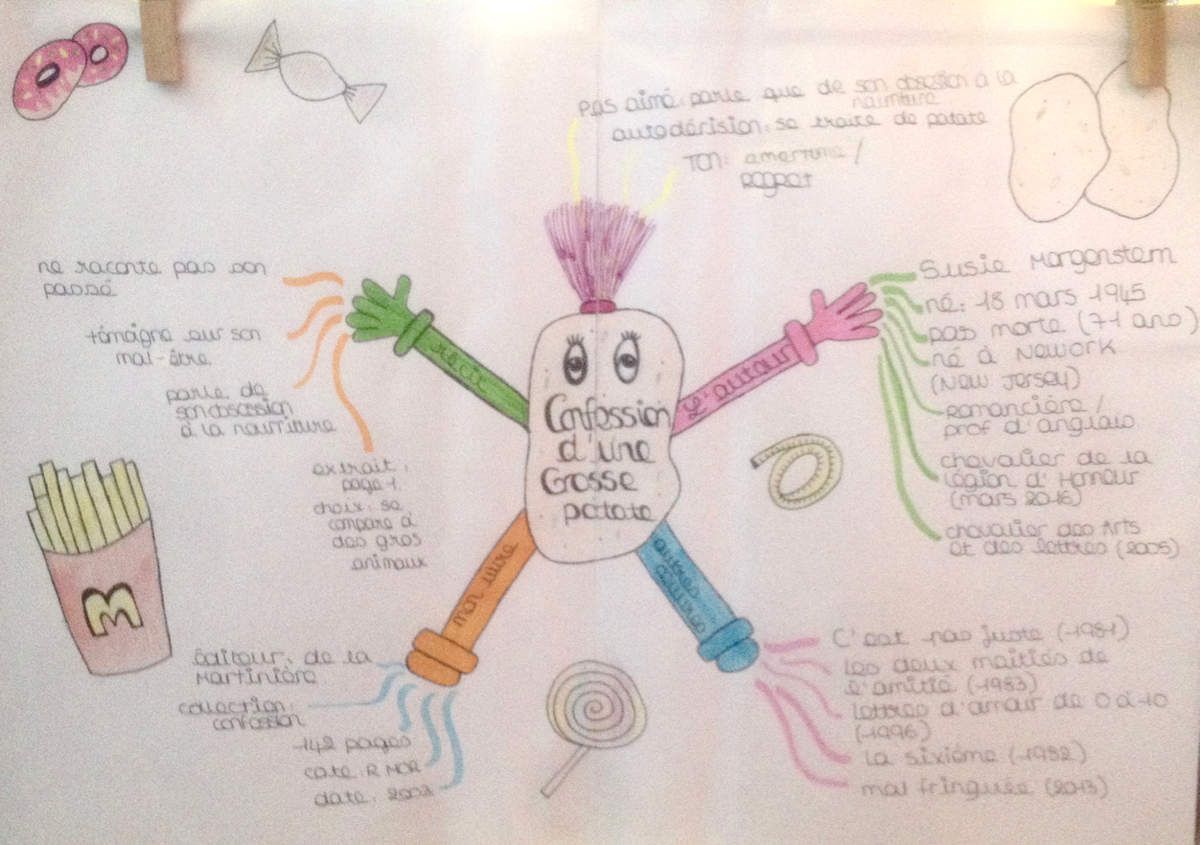 Pas aimé: parle que de son obsession à la
nourriture
autodérision: se traite de patate
Ton: amertume /
regret
Confession
d'une
Grosse
patate
récit
ne raconte pas son
passé
témoigne sur son
mal-être
parle de
son obsession
à la nourriture
extrait:
page 1.
choix: se
compare à
des gros
animaux
L'auteur
Susie Morgenstern
né: 18 mars 1945
pas morte (71 ans)
né à Nework
(New Jersey)
romancière /
prof d'anglais
chevalier de la
légion d'Honneur
(mars 2016)
chevalier des Arts
et des lettres (2005)
M
mon livre
éditeur: de la
Martinière
collection:
confession
142 pages
cote: R MOR
date: 2003
autres
œuvres
C'est pas juste (1981)
les deux moitiés de
l'amitié (1983)
lettres d'amour de 0 à 10
(1996)
la sixième (1982)
mal fringuée (2013)